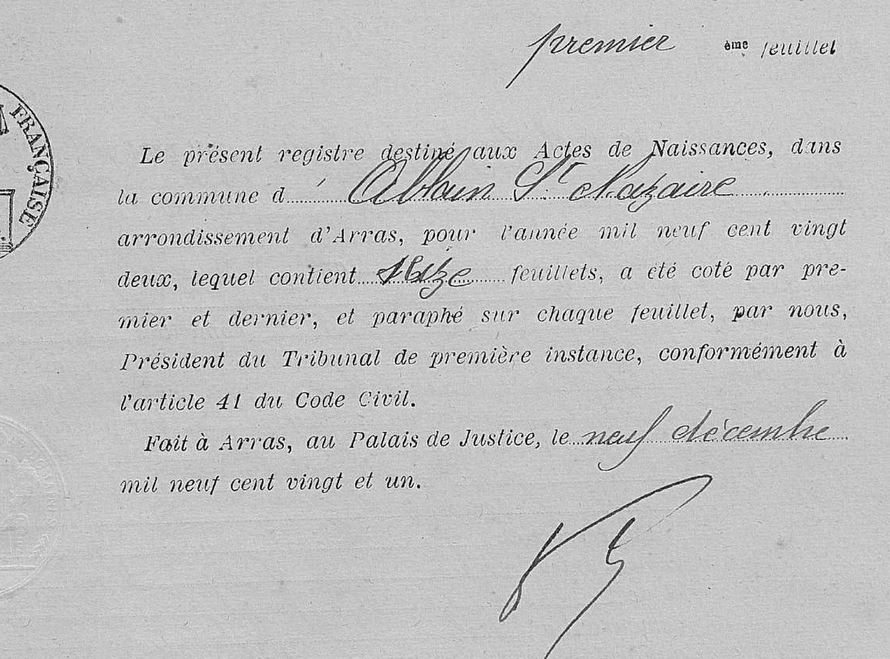 premier ème feuillet
FRANÇAISE
Le présent registre destiné aux Actes de Naissances, dans
la commune d Ablain St Nazaire
arrondissement d'Arras, pour l'année mil neuf cent vingt
deux, lequel contient feuillets, a été coté par pre-
mier et dernier, et paraphé sur chaque feuillet, par nous,
Président du Tribunal de première instance, conformément à
l'article 41 du Code Civil.
Fait à Arras, au Palais de Justice, le neuf décembre
mil neuf cent vingt et un.